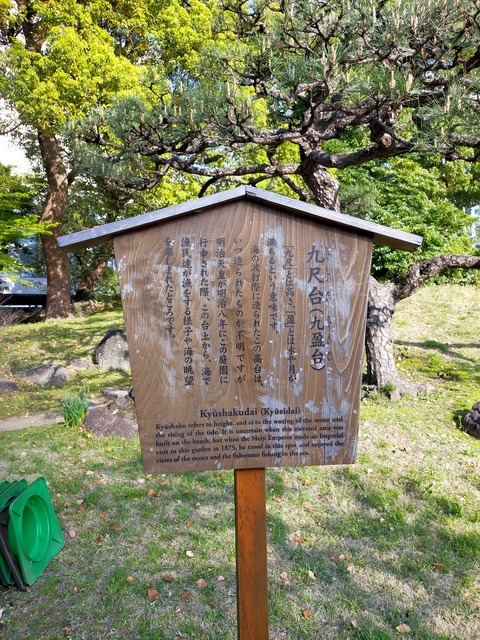 九尺台(九盈台)
「九尺」とは高さ、「盈」とは水や月が
満ちるという意味です。
海の波打際に造られたこの高台は、
いつ造られたものか不明ですが
明治天皇が明治八年にこの庭園に
行幸された際、この台上から、海で
漁民達が漁をする様子や海の眺望
を楽しまれたところです。
Kyūshakudai (Kyūeidai)
Kyūshaku refers to height, and ei to the waxing of the moon and
the rising of the tide. It is uncertain when this elevated area was
built on the beach, but when the Meiji Emperor made an Imperial
visit to this garden in 1875, he stood in this spot and enjoyed the
views of the ocean and the fishermen fishing in the sea.